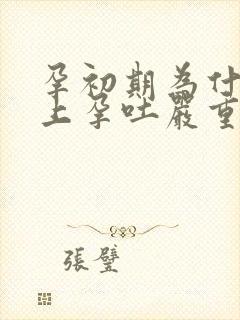 孕初期為什
上孕吐嚴重
張璧